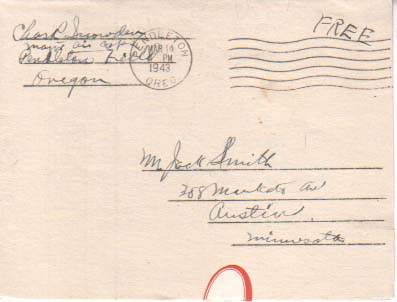 Chas R Snowden
Pendleton Field
Oregon
PENDLETON
MAR 14
PM
1943
OREG
FREE
Mr Jack Smith
308 Mankato Av
Austin
Minnesota